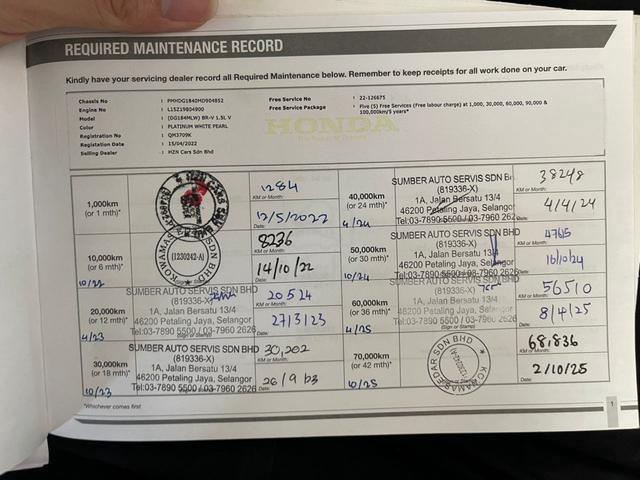 REQUIRED MAINTENANCE RECORD
Kindly have your servicing dealer record all Required Maintenance below. Remember to keep receipts for all work done on your car.
Chassis No : PMHDG1840MD904852
Engine No : L15Z19804900
Model : (DG184MLW) BR-V 1.5L V
Color : PLATINUM WHITE PEARL
Registration No : QM3709K
Registration Date : 15/04/2022
Selling Dealer : MZN Cars Sdn Bhd
Free Service No : 22-126675
Free Service Package : Five (5) Free Services (Free labour charge) at 1,000, 30,000, 60,000, 90,000 & 100,000km/5 years*
HONDA
1,000km
(or 1 mth)*
1284
KM or Month:
12/5/2022
Date:
10,000km
(or 6 mth)*
10/22
KOWAMAS SDN BHD
(1230242-A)
8236
KM or Month:
14/10/22
Date:
20,000km
(or 12 mth)*
4/23
SUMBER AUTO SERVIS SDN BHD
(819336-X)
1A, Jalan Bersatu 13/4
46200 Petaling Jaya, Selangor
Tel:03-7890 5500 / 03-7960 2626
20524
KM or Month:
27/3/23
Date:
30,000km
(or 18 mth)*
10/23
SUMBER AUTO SERVIS SDN BHD
(819336-X)
1A, Jalan Bersatu 13/4
46200 Petaling Jaya, Selangor
Tel:03-7890 5500 / 03-7960 2626
30,202
KM or Month:
26/9/23
Date:
40,000km
(or 24 mth)*
4/24
SUMBER AUTO SERVIS SDN B
(819336-X)
1A, Jalan Bersatu 13/4
46200 Petaling Jaya, Selangor
Tel:03-7890 5500 / 03-7960 262
38248
KM or Month:
4/4/24
Date:
50,000km
(or 30 mth)*
10/24
SUMBER AUTO SERVIS SDN BHD
(819336-X)
1A, Jalan Bersatu 13/4
46200 Petaling Jaya, Selangor
Tel:03-7890 5500 / 03-7960 2626
KM or Month:
16/10/24
Date:
60,000km
(or 36 mth)*
4/25
SUMBER AUTO SERVIS SDN BHD
(819336-X)
1A, Jalan Bersatu 13/4
46200 Petaling Jaya, Selangor
Tel:03-7890 5500 / 03-7960 2626
(Sign or Stamp)
56510
KM or Month:
8/4/25
Date:
70,000km
(or 42 mth)*
10/25
KOWAMAS EDAR SDN BHD
(1230242-A)
68,836
KM or Month:
2/10/25
Date:
*Whichever comes first
1